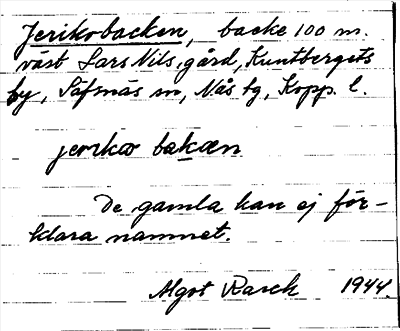 Jerikobacken, backe 100 m.
väst Lars Nils, gård, Kuntbergets
by, Säfsnäs sn, Nås tg, Kopp. l.
jerikæ bakæn
De gamla kan ej för-
klara namnet.
Algot Rasck 1944.